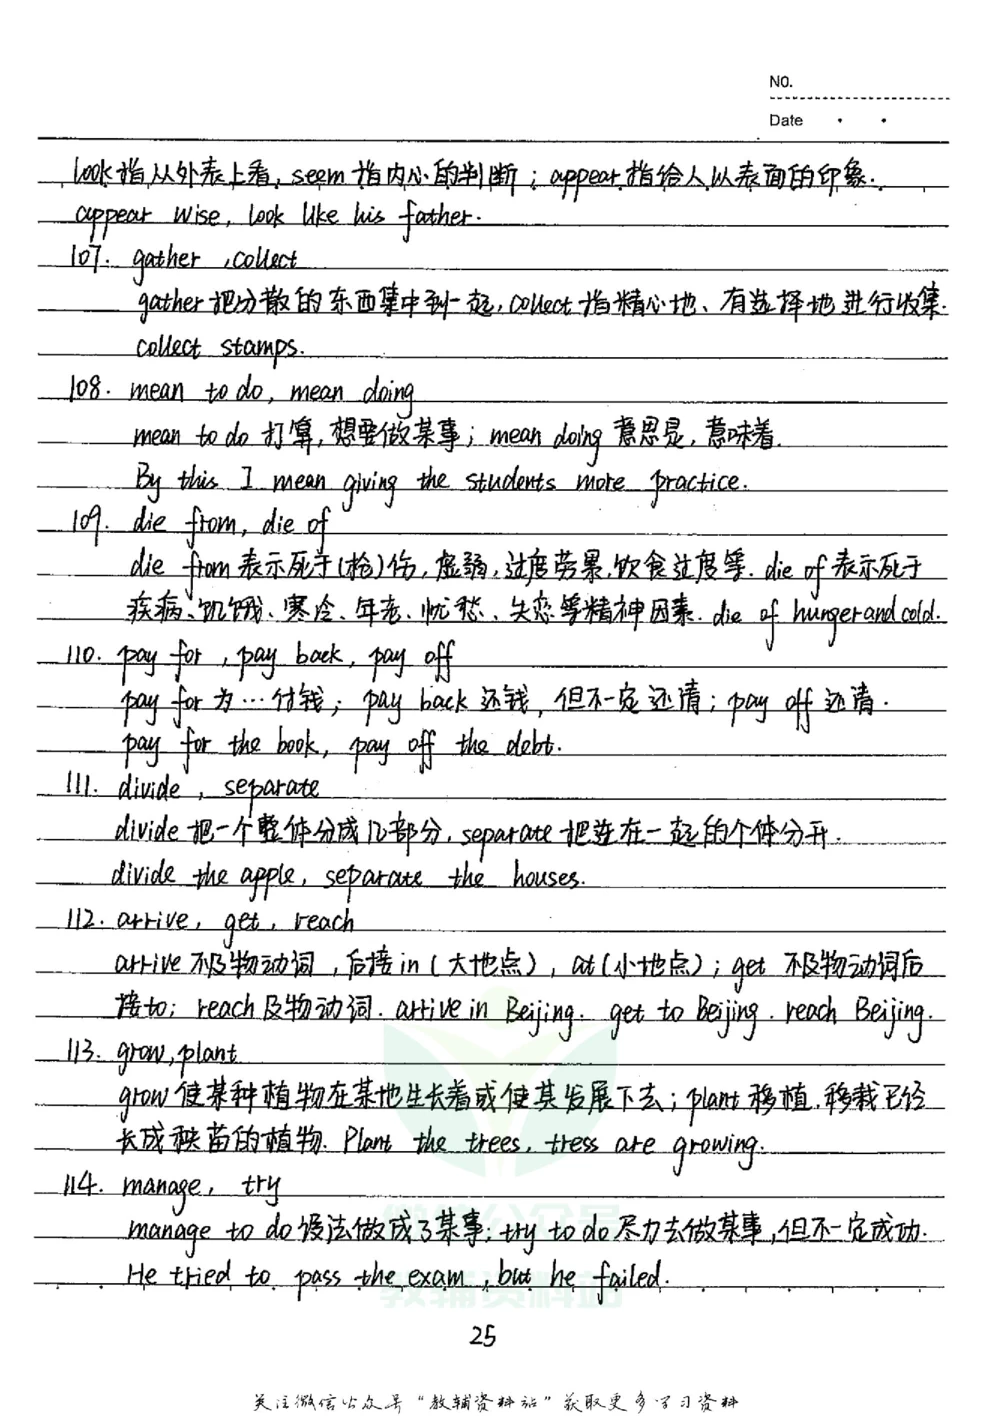 NO.
Date
look指从外表上看, seem指内心的判断; appear指给人以表面的印象.
appear wise, look like his father.
107. gather, collect
gather把分散的东西集中到一起, collect指精心地、有选择地进行收集.
collect stamps.
108. mean to do, mean doing
mean to do 打算,想要做某事; mean doing 意思是,意味着.
By this I mean giving the students more practice.
109. die from, die of
die from表示死于(枪)伤,虚弱,过度劳累,饮食过度等. die of表示死于
疾病、饥饿、寒冷、年老、忧愁、失恋等精神因素. die of hunger and cold.
110. pay for, pay back, pay off
pay for 为…付钱; pay back 还钱, 但不一定还清; pay off 还清.
pay for the book, pay off the debt.
111. divide, separate
divide 把一个整体分成几部分, separate把连在一起的个体分开.
divide the apple, separate the houses.
112. arrive, get, reach
arrive不及物动词,后接in(大地点), at(小地点); get 不及物动词后
接to; reach及物动词. arrive in Beijing. get to Beijing. reach Beijing.
113. grow, plant
grow使某种植物在某地生长着或使其发展下去; plant移植,移栽已经
长成秧苗的植物. Plant the trees, tress are growing.
114. manage, try
manage to do设法做成了某事; try to do尽力去做某事,但不一定成功.
He tried to pass the exam, but he failed.
微信公众号
教辅资料站
25
关注微信公众号“教辅资料站”获取更多学习资料